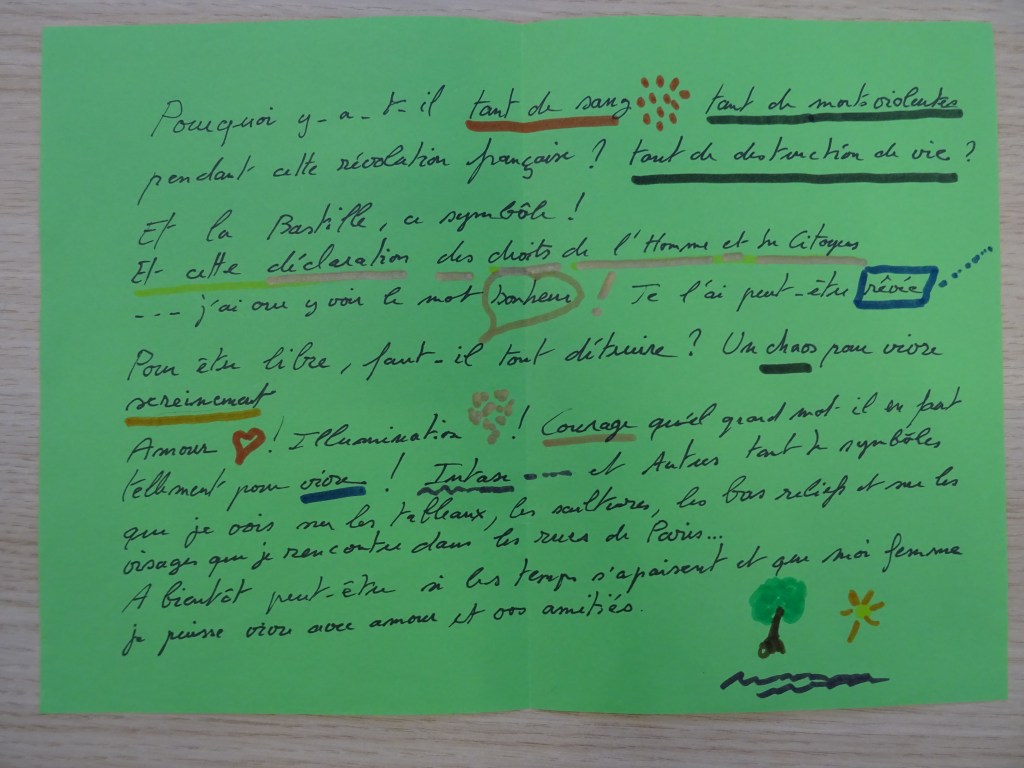 Pourquoi y-a-t-il tant de sang tant de morts violentes
pendant cette révolution française ? tant de destruction de vie ?
Et la Bastille, ce symbôle !
Et cette déclaration des droits de l'Homme et du Citoyen
--- j'ai cru y voir le mot bonheur ! Je l'ai peut-être rêvée
Pour être libre, faut-il tout détruire ? Un chaos pour vivre
sereinement
Amour ! Illumination ! Courage qu'el grand mot il en faut
tellement pour vivre ! ---- et Autres tant de symbôles
que je vois sur les tableaux, les scultures, les bas reliefs et sur les
visages que je rencontre dans les rues de Paris...
A bientôt peut-être si les temps s'apaisent et que moi femme
je puisse vivre avec amour et vos amitiés.